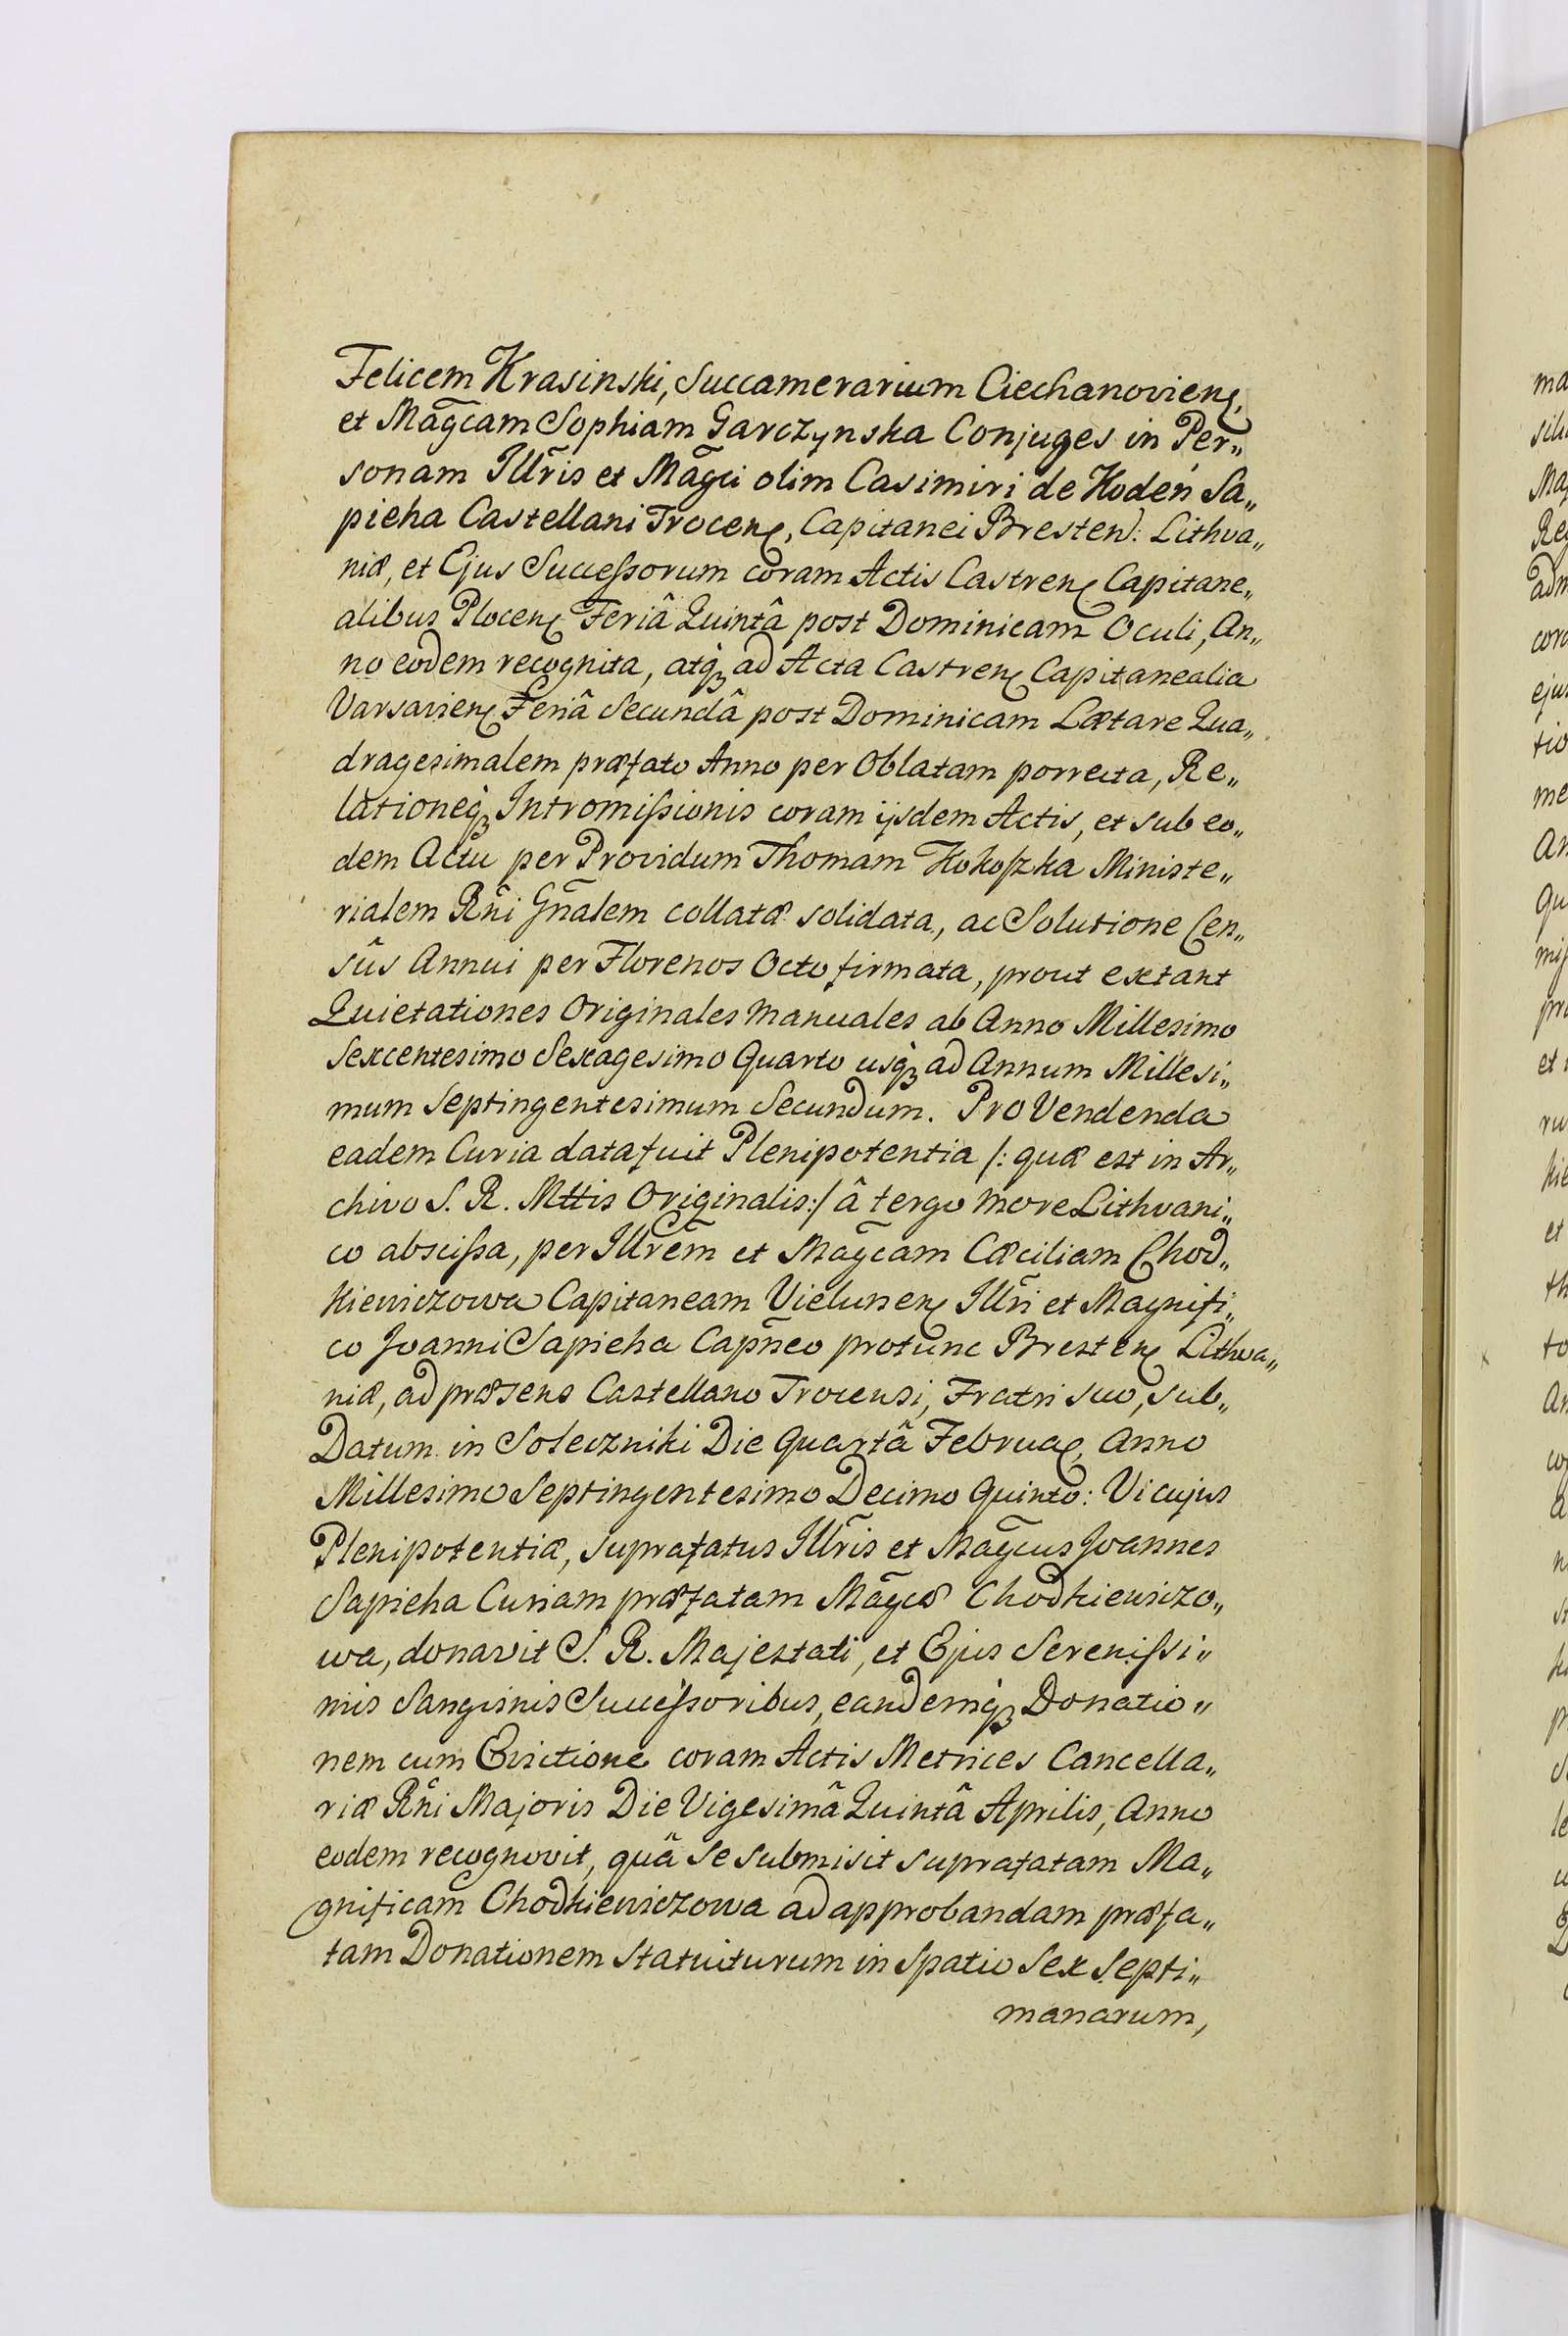 Felicem Krasinski, Succamerarium Ciechanovienꝭ,
et Mag̃cam Sophiam Garczynska Conjuges in Per„
sonam Illr̃is et Mag̃ci olim Casimiri de Kodeń Sa„
pieha Castellani Trocenꝭ, Capitanei Bresten: Lithva„
niæ, et Ejus Succeßorum coram Actis Castrenꝭ Capitane„
alibus Plocenꝭ Feriâ Quintâ post Dominicam Oculi, An„
no eodem recognita, atqꝫ ad Acta Castrenꝭ Capitanealia
Varsavienꝭ Feriâ Secundâ post Dominicam Lætare Qua„
dragesimalem præfato Anno per Oblatam porrecta, Re„
lationeqꝫ Intromißionis coram ijsdem Actis, et sub eo„
dem Actu per Providum Thomam Kokoszka Ministe„
rialem Rñi Gñalem collatæ solidata, ac Solutione Cen„
sûs Annui per Florenos Octo firmata, prout extant
Quietationes Originales Manuales ab Anno Millesimo
Sexcentesimo Sexagesimo Quarto usqꝫ ad Annum Millesi„
mum Septingentesimum Secundum. Pro Vendenda
eadem Curia data fuit Plenipotentia /: quæ est in Ar„
chivo S. R. Mttis Originalis :/ â tergo more Lithvani„
co abscißa, per Illrẽm et Mag̃cam Cæciliam Chod„
kiewiczowa Capitaneam Vielunenꝭ Illr̃i et Magnifi„
co Joanni Sapieha Capñeo protunc Brestenꝭ Lithva„
niæ, ad præsens Castellano Trocensi, Fratri suo, sub„
Datum in Soleczniki Die Quartâ Februaꝭ, Anno
Millesimo Septingentesimo Decimo Quinto: Vi cujus
Plenipotentiæ, suprafatus Illr̃is et Mag̃cus Joannes
Sapieha Curiam præfatam Mag̃cæ Chodkiewiczo„
wa, donavit S. R. Majestati, et Ejus Sereniẞi„
mis Sangvinis Succeßoribus, eandemqꝫ Donatio„
nem cum Evictione coram Actis Metrices Cancella„
riæ Rñi Majoris Die Vigesimâ Quintâ Aprilis, Anno
eodem recognovit, quâ se submisit suprafatam Ma„
gnificam Chodkiewiczowa ad approbandam præfa„
tam Donationem statuiturum in spatio Sex Septi„
manarum,